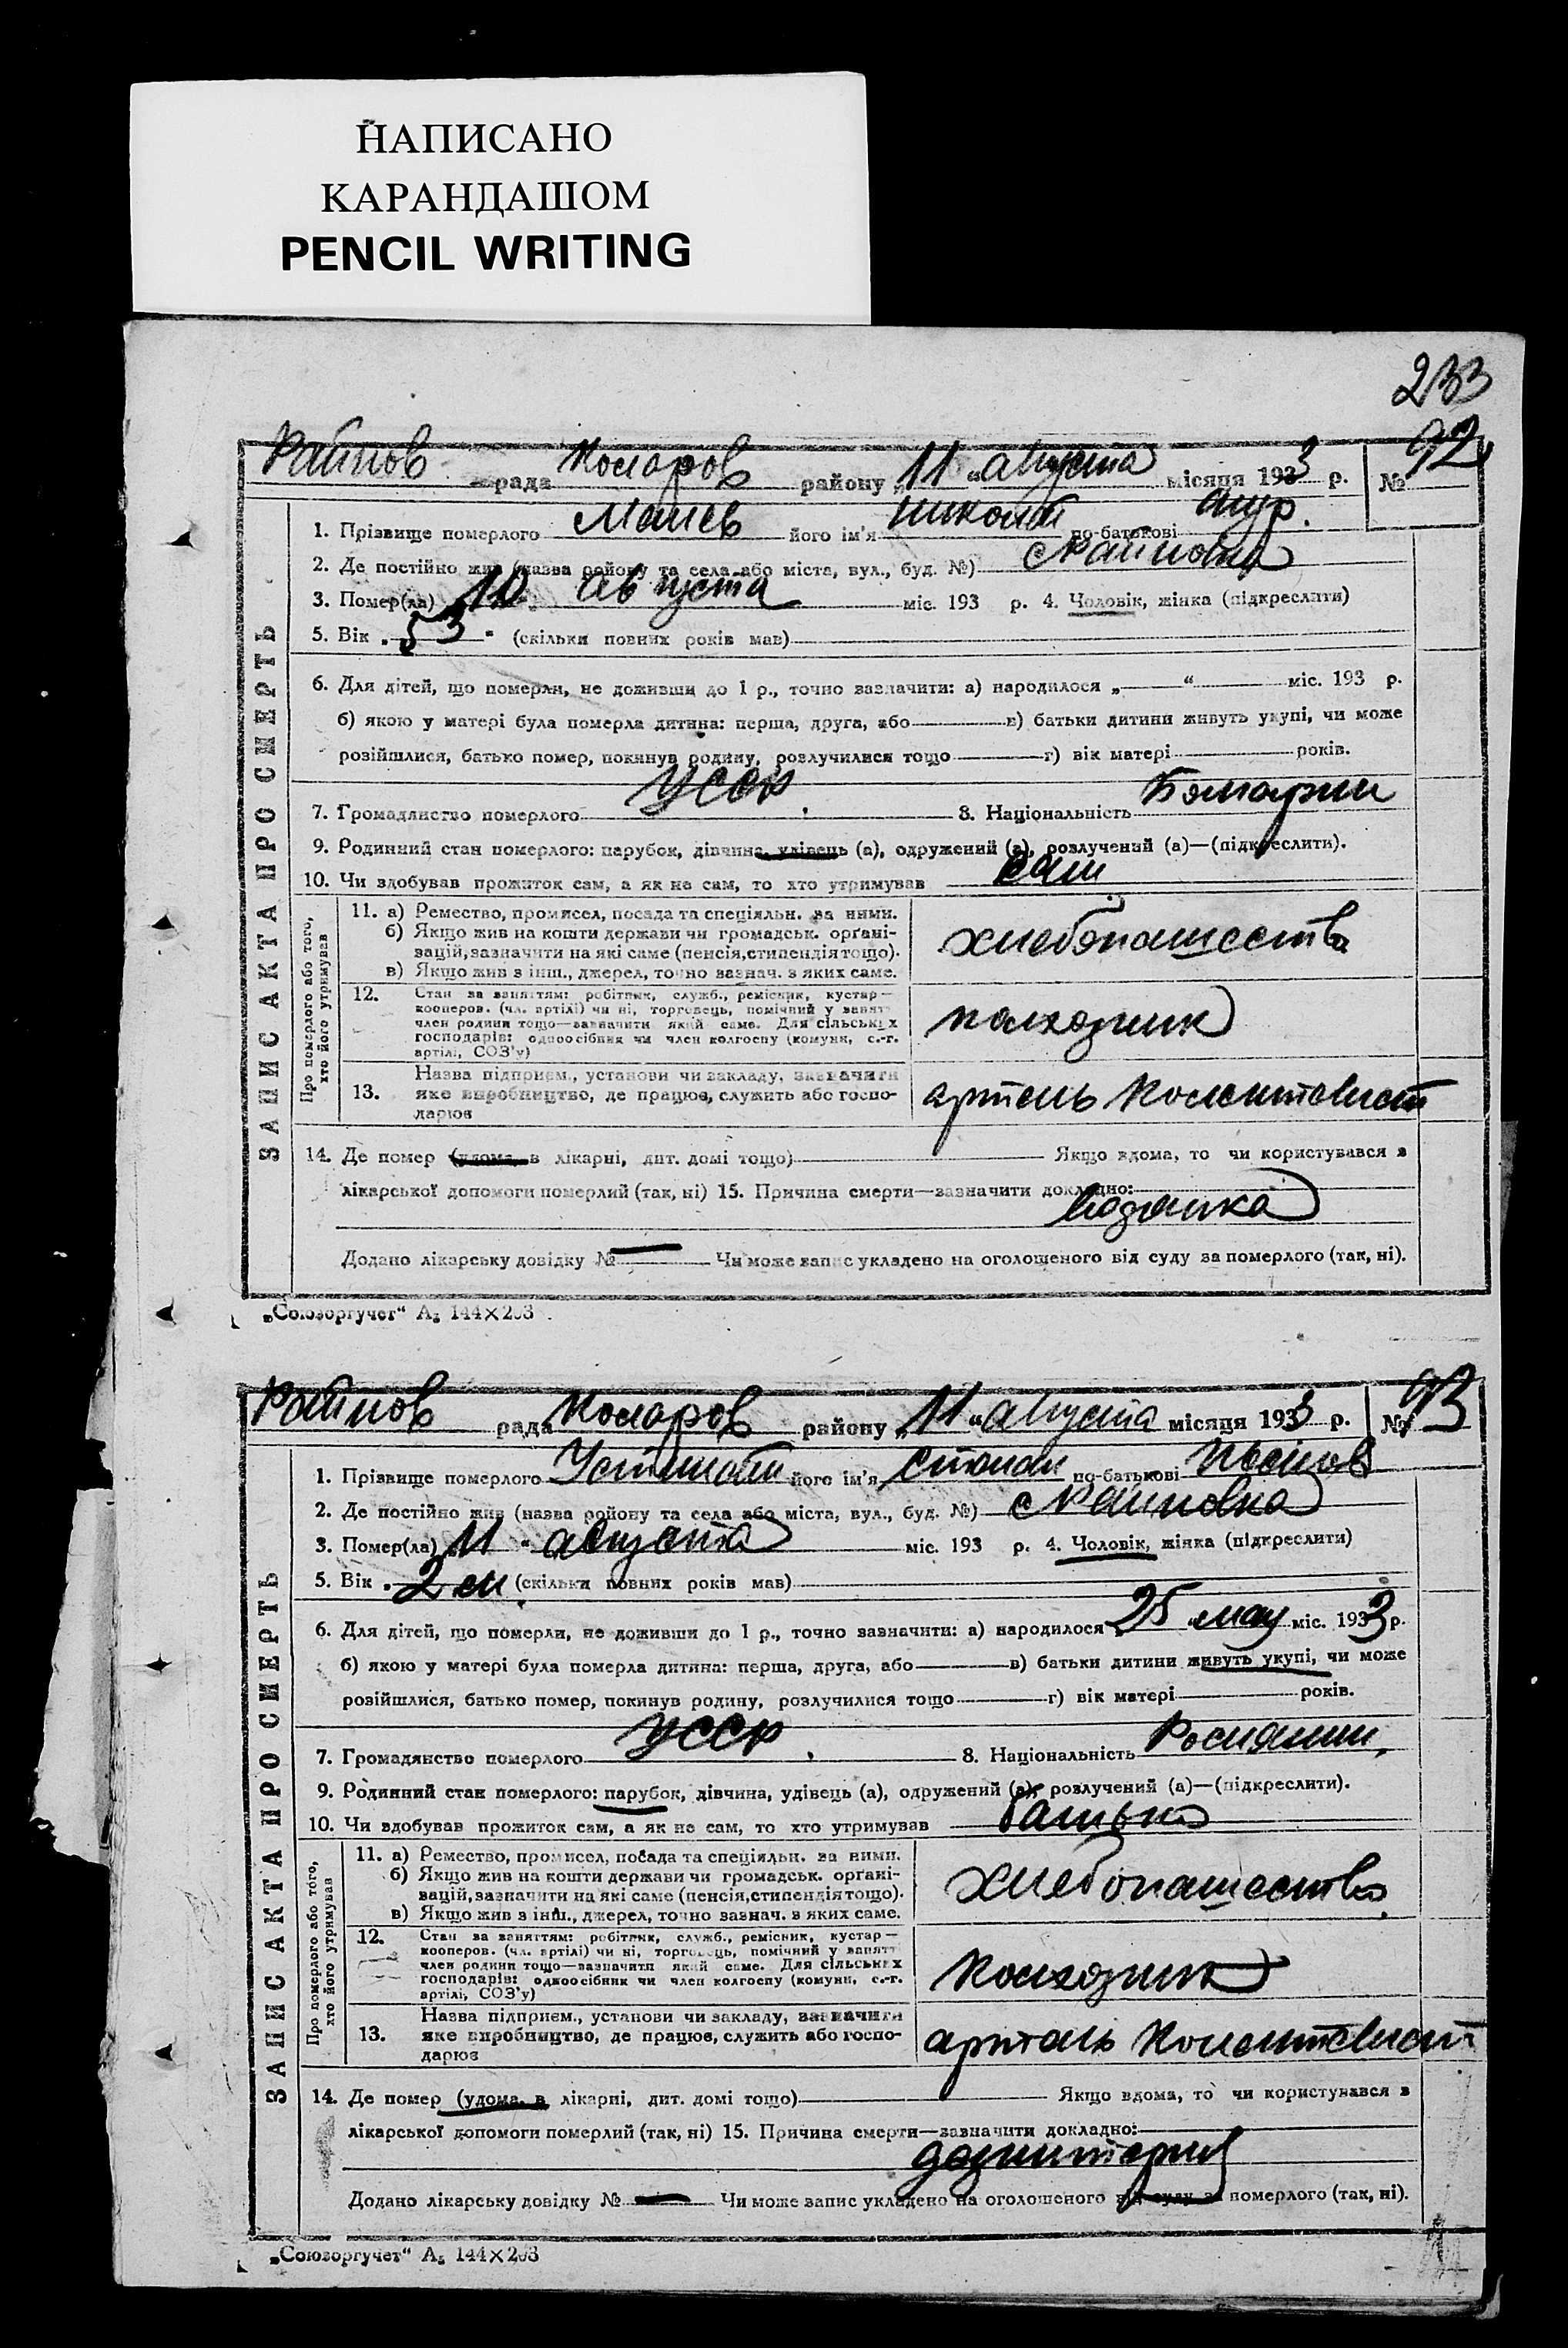 НАПИСАНО
КАРАНДАШОМ
PENCIL WRITING
233
Райнов рада Коларов району „11“ августа місяця 1933 р. № 92
1. Прізвище померлого його ім'я Николай по-батькові
2. Де постійно жив (назва району та села або міста, вул., буд. №) с Райновка
3. Помер(ла) 10 августа міс. 193 р. 4. Чоловік, жінка (підкреслити)
5. Вік „53“ (скільки повних років мав)
6. Для дітей, що померли, не доживши до 1 р., точно зазначити: а) народилося „ “ міс. 193 р.
б) якою у матері була померла дитина: перша, друга, або в) батьки дитини живуть укупі, чи може
розійшлися, батько помер, покинув родину, розлучилися тощо г) вік матері років.
7. Громадянство померлого УССР. 8. Національність Болгарин
9. Родинний стан померлого: парубок, дівчина, удівець (а), одружений (а), розлучений (а)—(підкреслити).
10. Чи здобував прожиток сам, а як не сам, то хто утримував сам
ЗАПИС АКТА ПРО СМЕРТЬ
Про померлого або того,
хто його утримував
11. а) Ремество, промисел, посада та спеціяльн. за ними.
б) Якщо жив на кошти держави чи громадськ. орґані-
зацій, зазначити на які саме (пенсія, стипендія тощо).
в) Якщо жив з інш., джерел, точно зазнач. з яких саме.
хлебопашество
12. Стан за заняттям: робітник, служб., ремісник, кустар—
кооперов. (чл. артілі) чи ні, торговець, помічний у занят
член родини тощо—зазначити який саме. Для сільських
господарів: одноосібник чи член колгоспу (комуни, с.-г.
артілі, СОЗ'у)
колхозник
13. Назва підприєм., установи чи закладу, зазначити
яке виробництво, де працює, служить або госпо-
дарює
артель Коллективист
14. Де помер (удома, в лікарні, дит. домі тощо) Якщо вдома, то чи користувався з
лікарської допомоги померлий (так, ні) 15. Причина смерти—зазначити докладно:
водянка
Додано лікарську довідку № — Чи може запис укладено на оголошеного від суду за померлого (так, ні).
„Союзоргучет“ А5 144×203
Райнов рада Коларов району „11“ августа місяця 1933 р. № 93
1. Прізвище померлого його ім'я Степан по-батькові Иванов
2. Де постійно жив (назва району та села або міста, вул., буд. №) с Райновка
3. Помер(ла) „11“ августа міс. 193 р. 4. Чоловік, жінка (підкреслити)
5. Вік „2 м. (скільки повних років мав)
6. Для дітей, що померли, не доживши до 1 р., точно зазначити: а) народилося „25“ мая міс. 1933 р.
б) якою у матері була померла дитина: перша, друга, або в) батьки дитини живуть укупі, чи може
розійшлися, батько помер, покинув родину, розлучилися тощо г) вік матері років.
7. Громадянство померлого УССР. 8. Національність Росиянин,
9. Родинний стан померлого: парубок, дівчина, удівець (а), одружений (а), розлучений (а)—(підкреслити).
10. Чи здобував прожиток сам, а як не сам, то хто утримував батько
ЗАПИС АКТА ПРО СМЕРТЬ
Про померлого або того,
хто його утримував
11. а) Ремество, промисел, посада та спеціяльн. за ними.
б) Якщо жив на кошти держави чи громадськ. орґані-
зацій, зазначити на які саме (пенсія, стипендія тощо).
в) Якщо жив з інш., джерел, точно зазнач. з яких саме.
хлебопашество
12. Стан за заняттям: робітник, служб., ремісник, кустар—
кооперов. (чл. артілі) чи ні, торговець, помічний у занятт
член родини тощо—зазначити який саме. Для сільських
господарів: одноосібник чи член колгоспу (комуни, с.-г.
артілі, СОЗ'у)
Колхозник
13. Назва підприєм., установи чи закладу, зазначити
яке виробництво, де працює, служить або госпо-
дарює
артель Коллективист
14. Де помер (удома, в лікарні, дит. домі тощо) Якщо вдома, то чи користувався з
лікарської допомоги померлий (так, ні) 15. Причина смерти—зазначити докладно:
дезинтерия
Додано лікарську довідку № — Чи може запис укладено на оголошеного від суду за померлого (так, ні).
„Союзоргучет“ А5 144×203